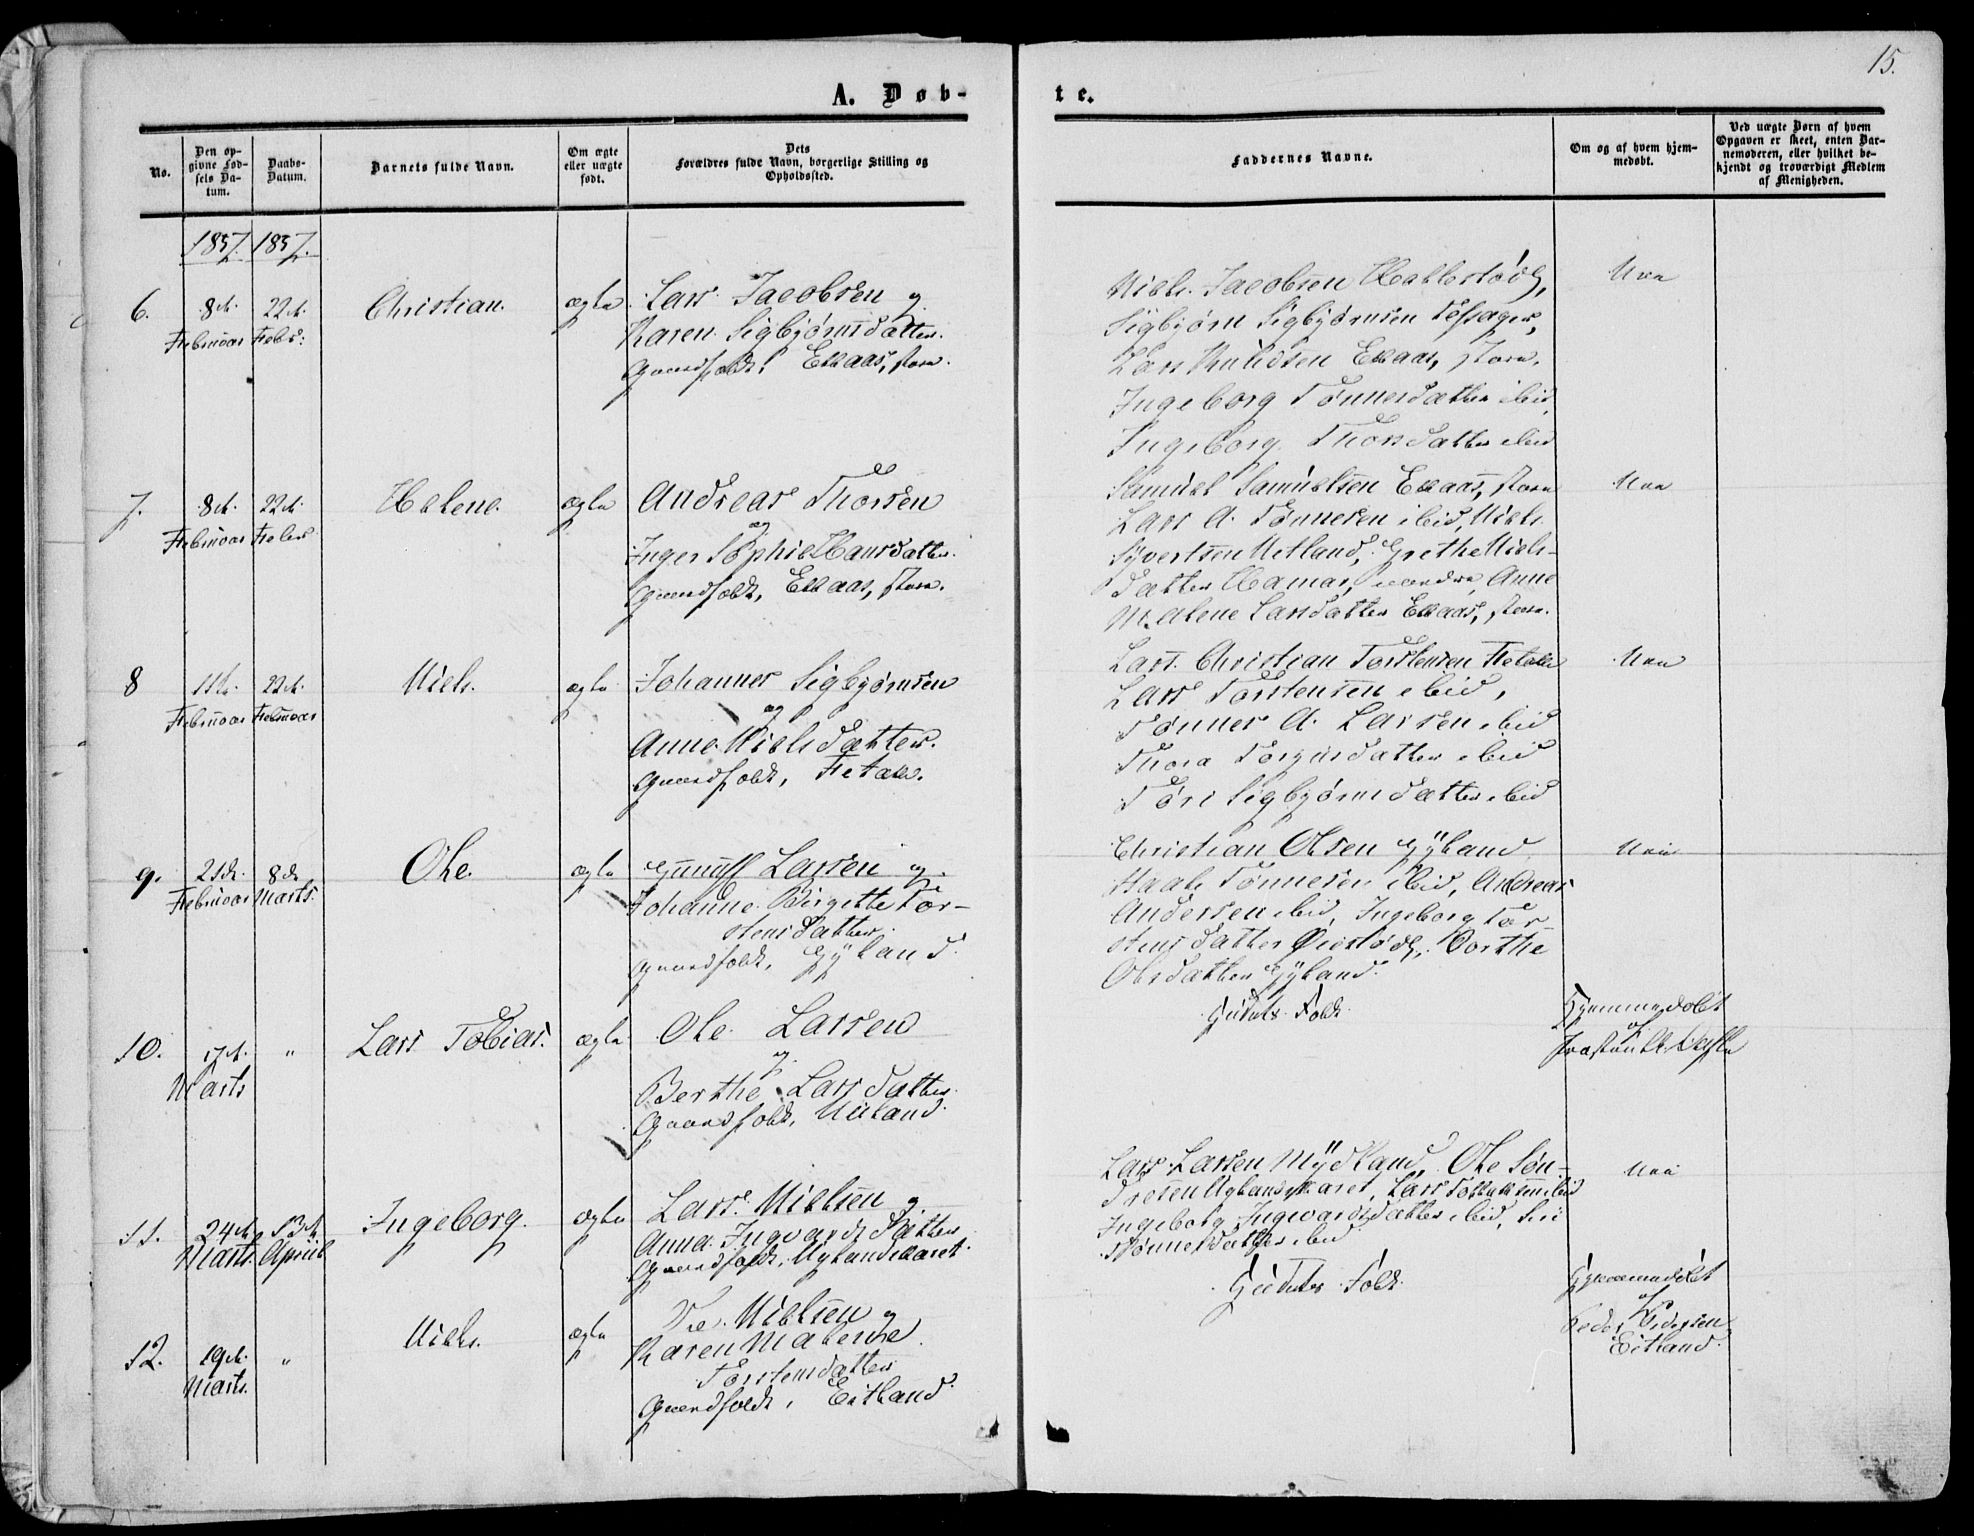 15.
A. Døb-
te.
No.
Den op-
givne Fød-
sels Da-
tum.
Daabs-
Datum.
Barnets fulde Navn.
Om ægte
eller uægte
født.
Dets
Forældres fulde Navn, borgerlige Stilling og
Opholdssted.
Faddernes Navne.
Om og af hvem hjem-
medøbt.
Ved uægte Børn af hvem
Opgaven er skeet, enten Bar-
nemoderen, eller hvilket be-
kjendt og troværdigt Medlem
af Menigheden.
1857. 1857.
6.
8de
Februar
22de
Febr:
Christian.
ægte
Lars Jacobsen og
Karen Sigbjørnsdatter.
Gaardfolk, Eeaas, store.
Niels Jacobsen
Sigbjørn Sigbjørnsen
Lars Knudsen Eeaas, store,
Ingeborg Tønnesdatter ibid,
Ingeborg Thorsdatter ibid
Nei
7.
8de
Februar
22de
Febr
Helene.
ægte
Andreas Thorsen
og
Inger Sophie Hansdatter.
Gaardfolk, Eeaas, store.
Samuel Samuelsen Eeaas, store
Lars A. Tønnesen ibid, Niels
Syvertsen Netland, Grethe Niels-
datter Hamar, nordre, Anne
Malene Larsdatter Eeaas, store.
Nei
8
11te
Februar
22de
Februar
Niels.
ægte
Johannes Sigbjørnsen
og
Anne Nielsdatter.
Gaardfolk,
Lars Christian Torstensen
Lars Torstensen ibid,
Tønnes A. Larsen ibid
Thora Torgersdatter ibid
Tøri Sigbjørnsdatter ibid
Nei
9.
21de
Februar
8de
Marts.
Ole.
ægte
Gunuff Larsen og
Johanne Birgitte Tor-
stensdatter.
Gaardfolk, Gÿland.
Christian Olsen Gÿland,
Tønnesen ibid, Andreas
Andersen ibid, Ingeborg Tor-
stensdatter Dorthe
Olsdatter Gÿland.
Nei
10.
17de
Marts
"
Lars Tobias.
ægte
Ole Larsen
og
Berthe Larsdatter.
Gaardfolk, Ueland.
Guds Folk.
Hjemmedøbt
af
11.
24de
Marts.
13de
April
Ingeborg.
ægte
Lars Nielsen og
Anna Ingvardsdatter
Gaardfolk,
Lars Larsen Mÿdland, Ole Søn-
dresen Lars ibid
Ingeborg Ingvardsdatter ibid, Siri
Tønnesdatter ibid
Nei
12.
19de
Marts.
"
Niels.
ægte
Nielsen og
Karen Malene
Torstensdatter
Gaardfolk, Eitland.
Guds Folk.
Hjemmedøbt
af
Peder Pedersen
Eitland.